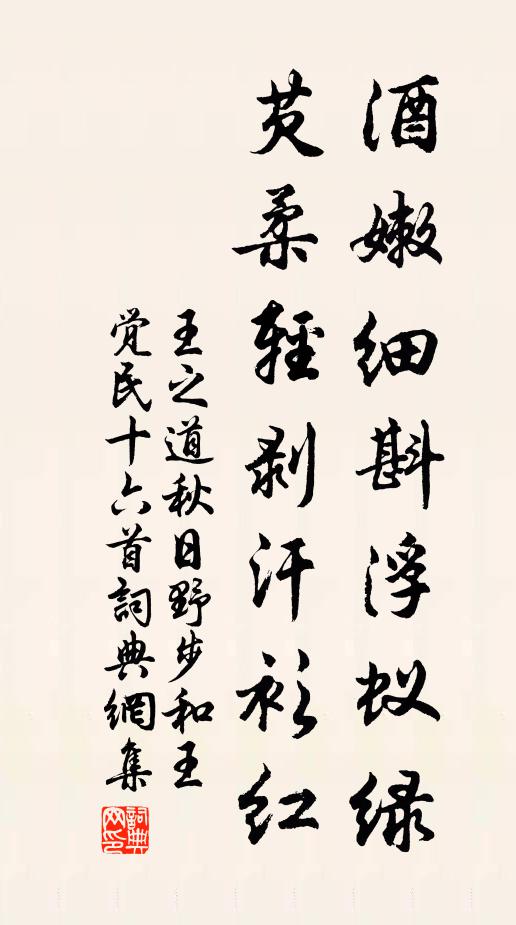 酒嫩细斟浮蚁绿
芡柔轻剥汗衫红
王之道秋日野步和王
觉民十六首詞典網集
詞典网印